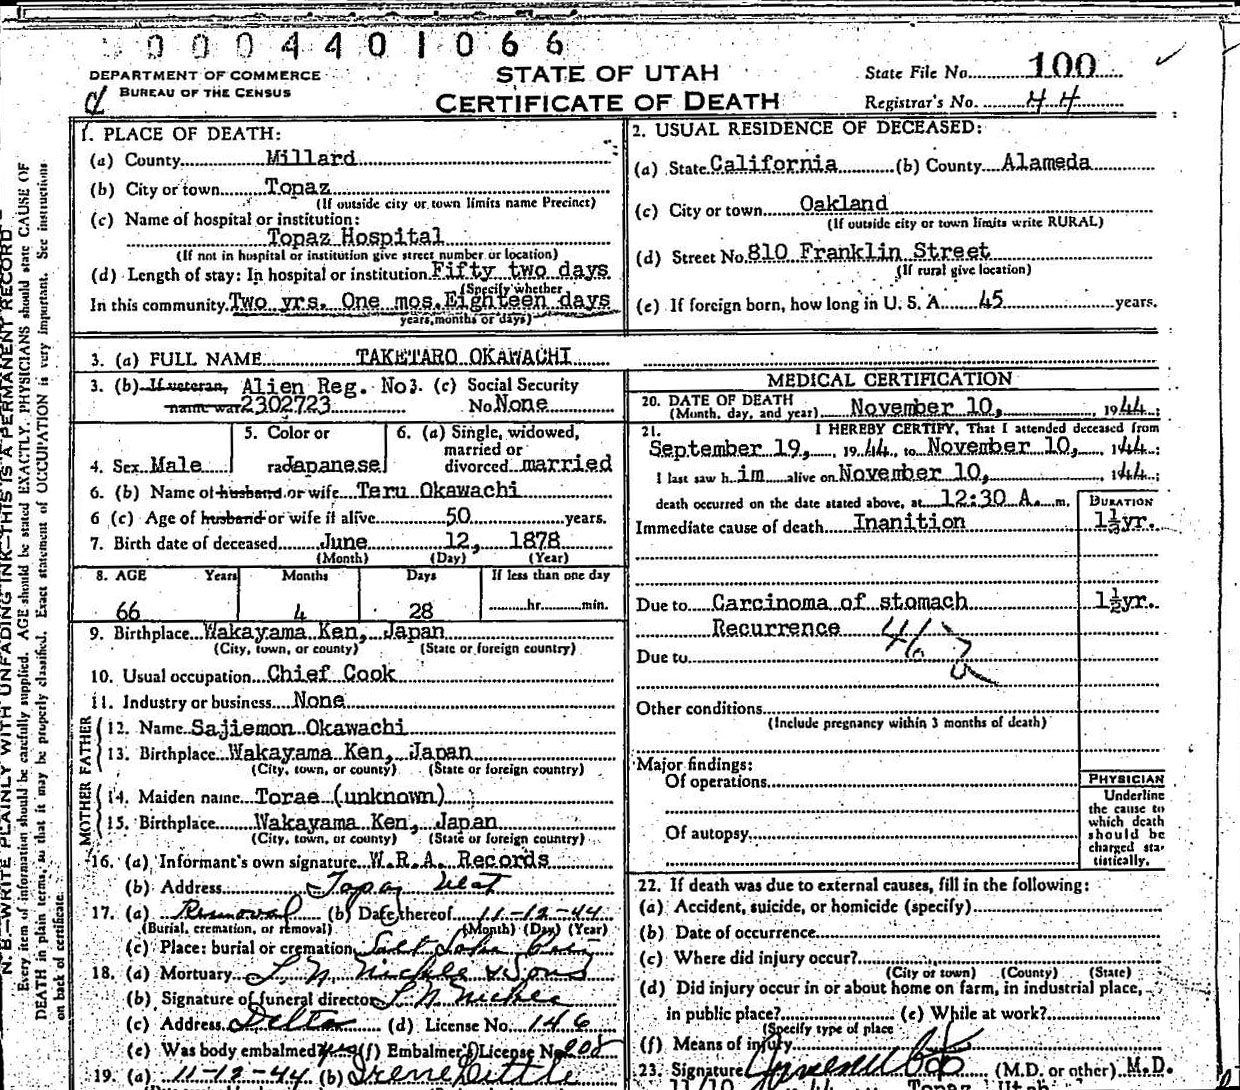 0004401066
DEPARTMENT OF COMMERCE
BUREAU OF THE CENSUS
STATE OF UTAH
CERTIFICATE OF DEATH
State File No. 100
Registrar's No. 44
N. B.—WRITE PLAINLY WITH UNFADING INK—THIS IS A PERMANENT RECORD
Every item of information should be carefully supplied. AGE should be stated EXACTLY. PHYSICIANS should state CAUSE OF
DEATH in plain terms, so that it may be properly classified. Exact statement of OCCUPATION is very important. See instructions
on back of certificate.
1. PLACE OF DEATH:
(a) County Millard
(b) City or town Topaz
(If outside city or town limits name Precinct)
(c) Name of hospital or institution:
Topaz Hospital
(If not in hospital or institution give street number or location)
(d) Length of stay: In hospital or institution Fifty two days
(Specify whether
In this community Two yrs. One mos. Eighteen days
years, months or days)
2. USUAL RESIDENCE OF DECEASED:
(a) State California (b) County Alameda
(c) City or town Oakland
(If outside city or town limits write RURAL)
(d) Street No. 810 Franklin Street
(If rural give location)
(e) If foreign born, how long in U. S. A. 45 years.
3. (a) FULL NAME TAKETARO OKAWACHI
3. (b) If veteran, Alien Reg. No 3. (c) Social Security
name war 2302723 No. None
4. Sex Male
5. Color or
race Japanese
6. (a) Single, widowed,
married or
divorced married
6. (b) Name of husband or wife Teru Okawachi
6 (c) Age of husband or wife if alive 50 years.
7. Birth date of deceased June 12, 1878
(Month) (Day) (Year)
8. AGE Years Months Days If less than one day
66 4 28 hr. min.
9. Birthplace Wakayama Ken, Japan
(City, town, or county) (State or foreign country)
10. Usual occupation Chief Cook
11. Industry or business None
FATHER
12. Name Sajiemon Okawachi
13. Birthplace Wakayama Ken, Japan
(City, town, or county) (State or foreign country)
MOTHER
14. Maiden name Torae (unknown)
15. Birthplace Wakayama Ken, Japan
(City, town, or county) (State or foreign country)
16. (a) Informant's own signature W.R.A. Records
(b) Address Topaz Utah
17. (a) Removal (b) Date thereof 11-12-44
(Burial, cremation, or removal) (Month) (Day) (Year)
(c) Place: burial or cremation Salt Lake
18. (a) Mortuary L N Nickle & Sons
(b) Signature of funeral director L N Nickle
(c) Address Delta (d) License No. 146
(e) Was body embalmed? yes (f) Embalmer's License No. 208
19. (a) 11-12-44 (b) Irene
MEDICAL CERTIFICATION
20. DATE OF DEATH
(Month, day, and year) November 10, 1944;
21. I HEREBY CERTIFY, That I attended deceased from
September 19, 1944, to November 10, 1944;
I last saw h im alive on November 10, 1944;
death occurred on the date stated above, at 12:30 A. m.
DURATION
Immediate cause of death Inanition 1½ yr.
Due to Carcinoma of stomach 1½ yr.
Recurrence
Due to
Other conditions
(Include pregnancy within 3 months of death)
Major findings:
Of operations
Of autopsy
PHYSICIAN
Underline
the cause to
which death
should be
charged sta-
tistically.
22. If death was due to external causes, fill in the following:
(a) Accident, suicide, or homicide (specify)
(b) Date of occurrence
(c) Where did injury occur?
(City or town) (County) (State)
(d) Did injury occur in or about home on farm, in industrial place,
in public place? (e) While at work?
(Specify type of place
(f) Means of injury
23. Signature (M.D. or other) M.D.
11/10 44 Topaz Utah